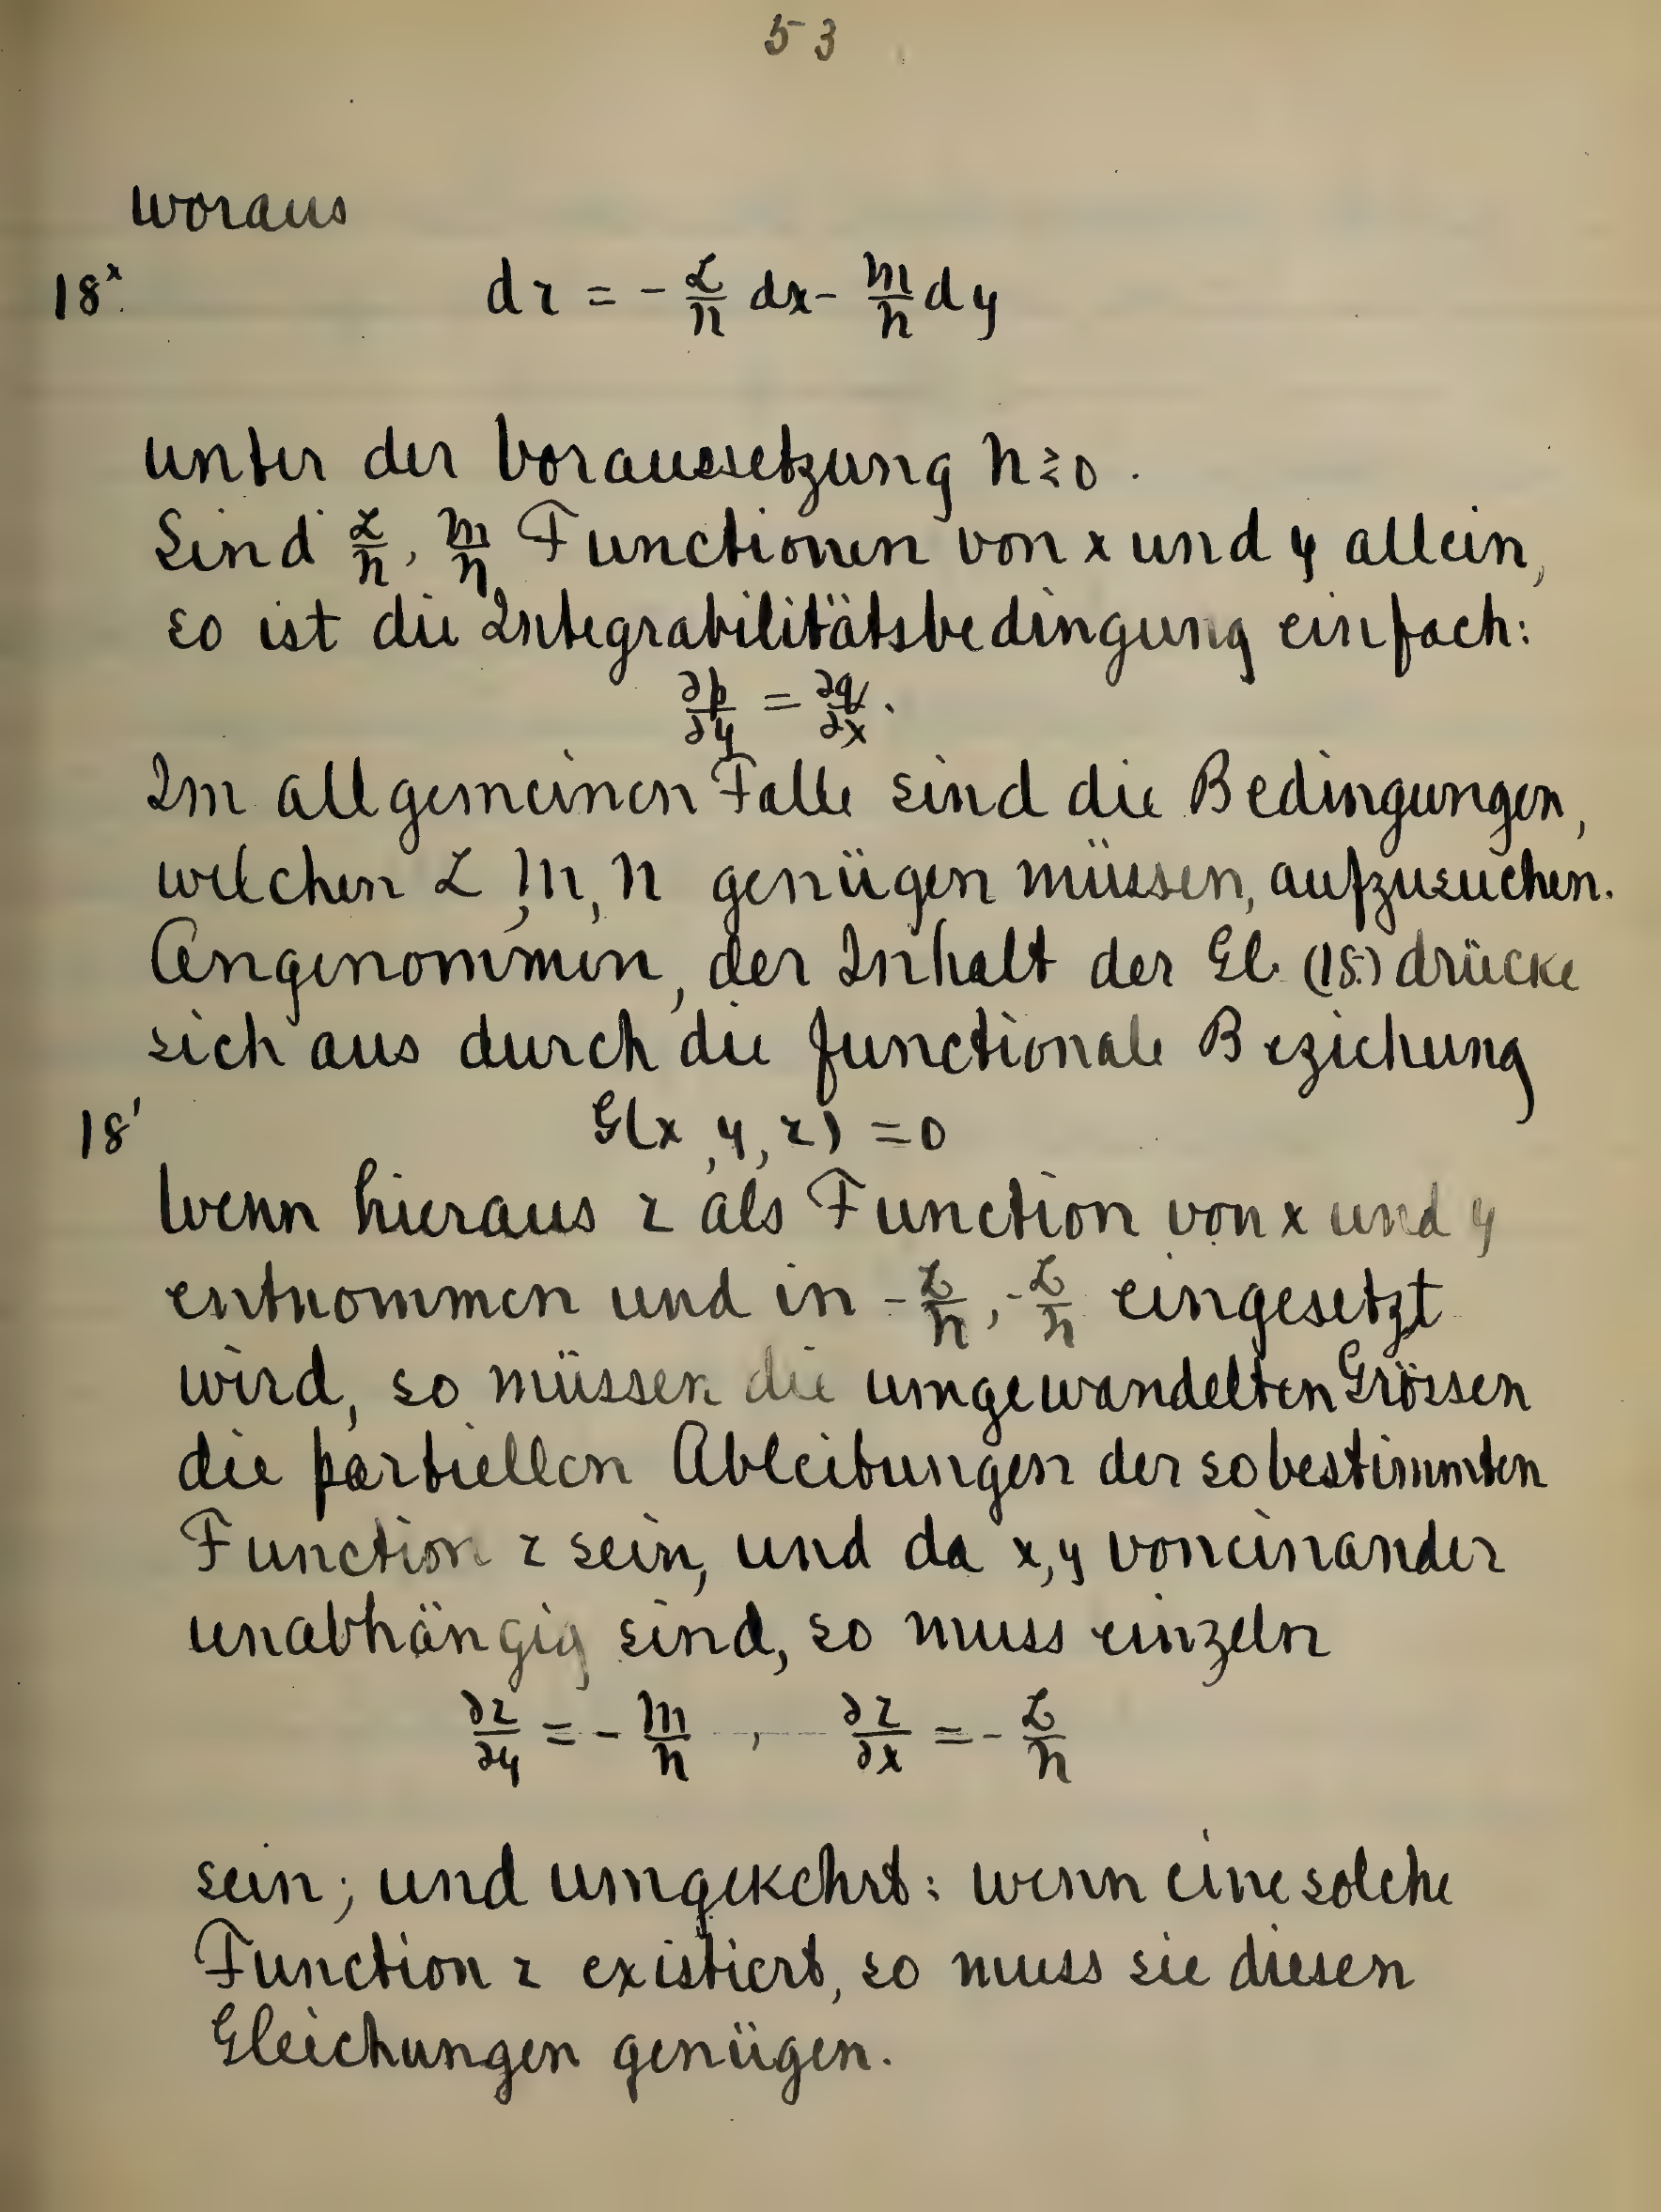 53
woraus
18ˣ. dz = - L/N dx - M/N dy
unter der Voraussetzung N ≷ 0.
Sind L/N, M/N Functionen von x und y allein,
so ist die Integrabilitätsbedingung einfach:
∂p/∂y = ∂q/∂x.
Im allgemeinen Falle sind die Bedingungen,
welchen L, M, N genügen müssen, aufzusuchen.
Angenommen, der Inhalt der Gl. (18.) drücke
sich aus durch die functionale Beziehung
18' G(x, y, z) = 0
Wenn hieraus z als Function von x und y
entnommen und in - L/N, - L/N eingesetzt
wird, so müssen die umgewandelten Grössen
die partiellen Ableitungen der so bestimmten
Function z sein, und da x, y voneinander
unabhängig sind, so muss einzeln
∂z/∂y = - M/N , ∂z/∂x = - L/N
sein; und umgekehrt: wenn eine solche
Function z existiert, so muss sie diesen
Gleichungen genügen.